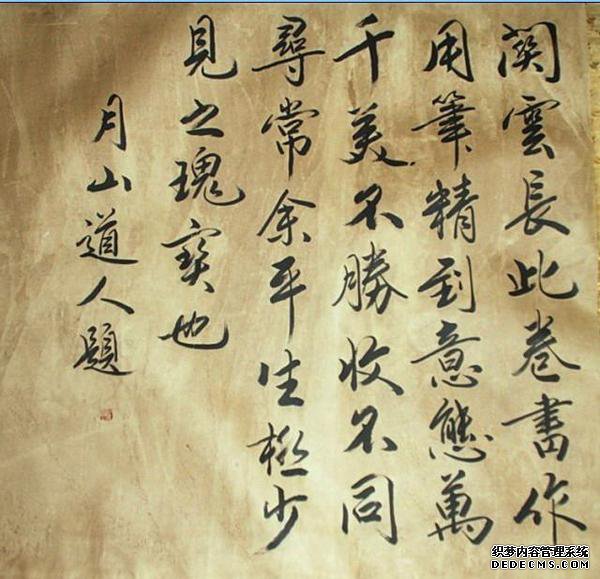 関雲長此卷書作
用筆精到意態萬
千美不勝收不同
尋常余平生極少
見之瑰寳也
月山道人題
织梦内容管理系统
DEDECMS.COM